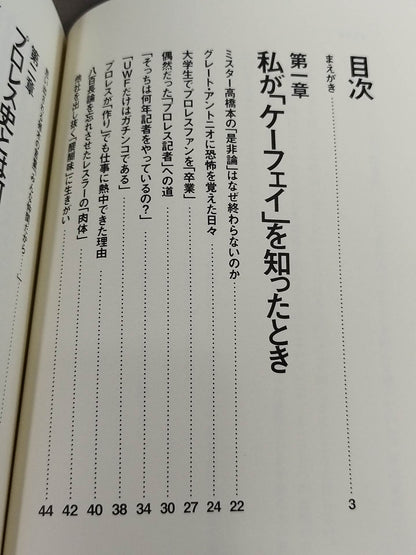 目次
まえがき 3
第一章
私が「ケーフェイ」を知ったとき
ミスター高橋本の「是非論」はなぜ終わらないのか 22
グレート・アントニオに恐怖を覚えた日々 24
大学生でプロレスファンを「卒業」 27
偶然だった「プロレス記者」への道 30
「そっちは何年記者をやっているの?」 34
「UWFだけはガチンコである」 38
プロレスが「作り」でも仕事に熱中できた理由 40
八百長論を忘れさせたレスラーの「肉体」 42
他社を出し抜く“醍醐味”に生きがい 44
第二章
プロレス